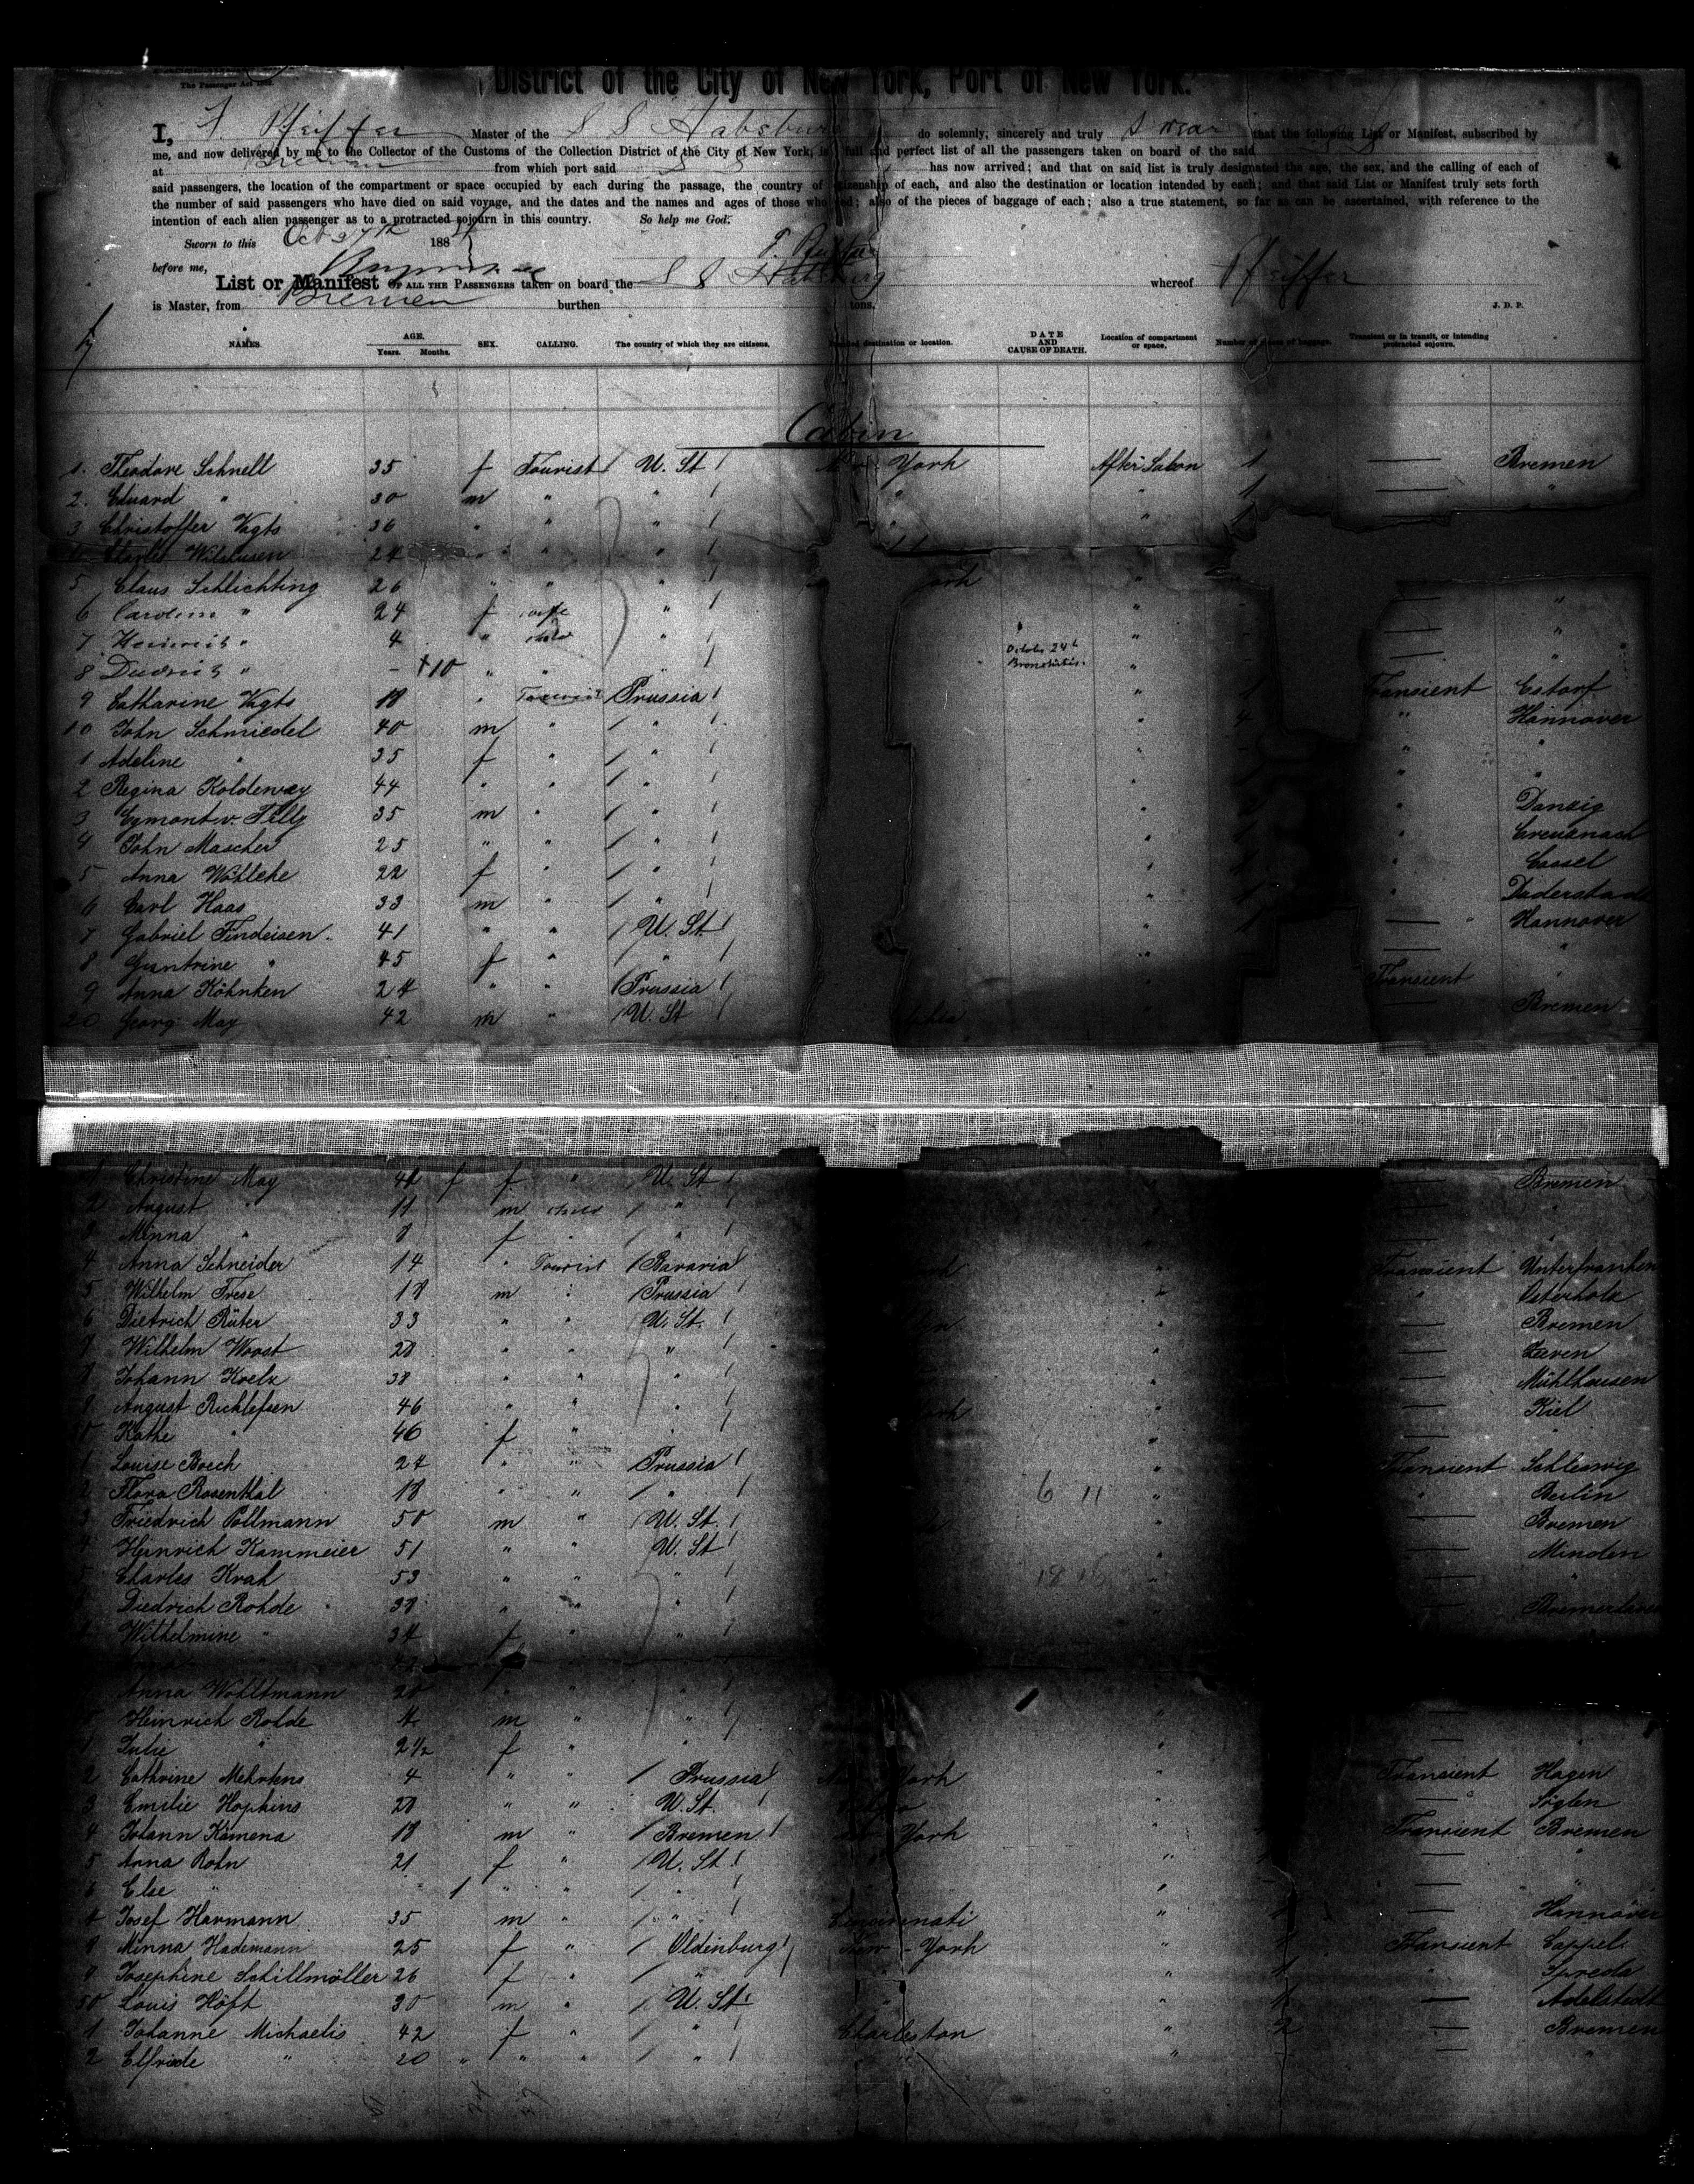 The Passenger Act 1882.
District of the City of New York, Port of New York.
I, F. Pfeiffer Master of the S S Habsburg do solemnly, sincerely and truly swear that the following List or Manifest, subscribed by
me, and now delivered by me to the Collector of the Customs of the Collection District of the City of New York, is a full and perfect list of all the passengers taken on board of the said S S
at Bremen from which port said S S has now arrived; and that on said list is truly designated the age, the sex, and the calling of each of
said passengers, the location of the compartment or space occupied by each during the passage, the country of citizenship of each, and also the destination or location intended by each; and that said List or Manifest truly sets forth
the number of said passengers who have died on said voyage, and the dates and the names and ages of those who died; also of the pieces of baggage of each; also a true statement, so far as can be ascertained, with reference to the
intention of each alien passenger as to a protracted sojourn in this country. So help me God.
Sworn to this Oct 27th 188
before me,
List or Manifest OF ALL THE PASSENGERS taken on board the S S Habsburg whereof Pfeiffer
is Master, from Bremen burthen tons. J. D. P.
NAMES. AGE. Years. Months. SEX. CALLING. The country of which they are citizens. Intended destination or location. DATE AND CAUSE OF DEATH. Location of compartment or space. Number of pieces of baggage. Transient or in transit, or intending protracted sojourn.
Cabin
1. Theodore Schnell 35 f Tourist U. St New York After Salon 1 — Bremen
2. Eduard " 30 m " " " " 1 — "
3 Christoffer Vagts 36 " " " " " 1
4 Charles Wilshusen 24 " " "
5 Claus Schlichting 26 " " " York "
6 Carolina " 24 f wife " " — "
7 Heinrich " 4 " child " " — "
8 Diedrich " - +10 " " " Octob. 24th Bronchitis. " — "
9 Catharine Vagts 18 " Tourist Prussia " 1 Transient Estorf
10 John Schmiedel 40 m " " " 4 " Hannover
1 Adeline " 35 f " " " - " "
2 Regina Koldewey 44 " " " " " "
3 Egmont v. Tilly 35 m " " " " Danzig
4 John Mascher 25 " " " " " Creuznach
5 Anna Wöhleke 22 f " " " " Cassel
6 Carl Haas 33 m " " " 1 " Duderstadt
7 Gabriel Findeisen 41 " " U. St " 1 — Hannover
8 " 45 f " " " — "
9 Anna Köhnken 24 " " Prussia Transient "
20 Georg May 42 m " U. St " — Bremen
1 Christine May 41 f " U. St — Bremen
2 August " 11 m child " — "
3 Minna " 8 f " " — "
4 Anna Schneider 14 " Tourist Bavaria " Transient Unterfranken
5 Wilhelm Frese 18 m " Prussia " " Osterholz
6 Dietrich Rüter 33 " " U. St. " — Bremen
7 Wilhelm Woost 28 " " " " — Zeven
8 Johann Koelz 38 " " " " — Mühlhausen
9 August Richlefsen 46 " " " York " — Kiel
30 Käthe " 40 f " " " —
1 Louise Boech 24 " " Prussia " Transient Schleswig
2 Flora Rosenthal 18 " " " 6 11 " " Berlin
3 Friedrich Pollmann 50 m " U. St. " — Bremen
4 Heinrich Kammeier 51 " " U. St " — Minden
5 Charles Krah 53 " " " " — "
6 Diedrich Rohde 38 " " " " — Bremerhaven
7 Wilhelmine " 34 f " "
Anna Wohltmann 20 " " "
Heinrich Rohde 4 m " " " —
1 Julie " 2 1/2 f " " " — "
2 Cathrine Mehrtens 4 " " Prussia New York " Transient Hagen
3 Emilie Hopkins 28 " " U. St. " —
4 Johann Kamena 18 m " Bremen New York " Transient Bremen
5 Anna Rohn 21 f " U. St " — "
6 Else " 1 " " " " — "
7 Josef Harmann 35 m " " Cincinnati " — Hannover
8 Minna Hademann 25 f " Oldenburg New-York " 1 Transient Cappel
9 Josephine Schillmöller 26 f " " " " 1 " Spreda
50 Louis Höft 30 m " U. St. " " 1 — Adelstedt
1 Johanne Michaelis 42 f " " Charleston " 2 — Bremen
2 Elfriede " 20 " " " " " " — "